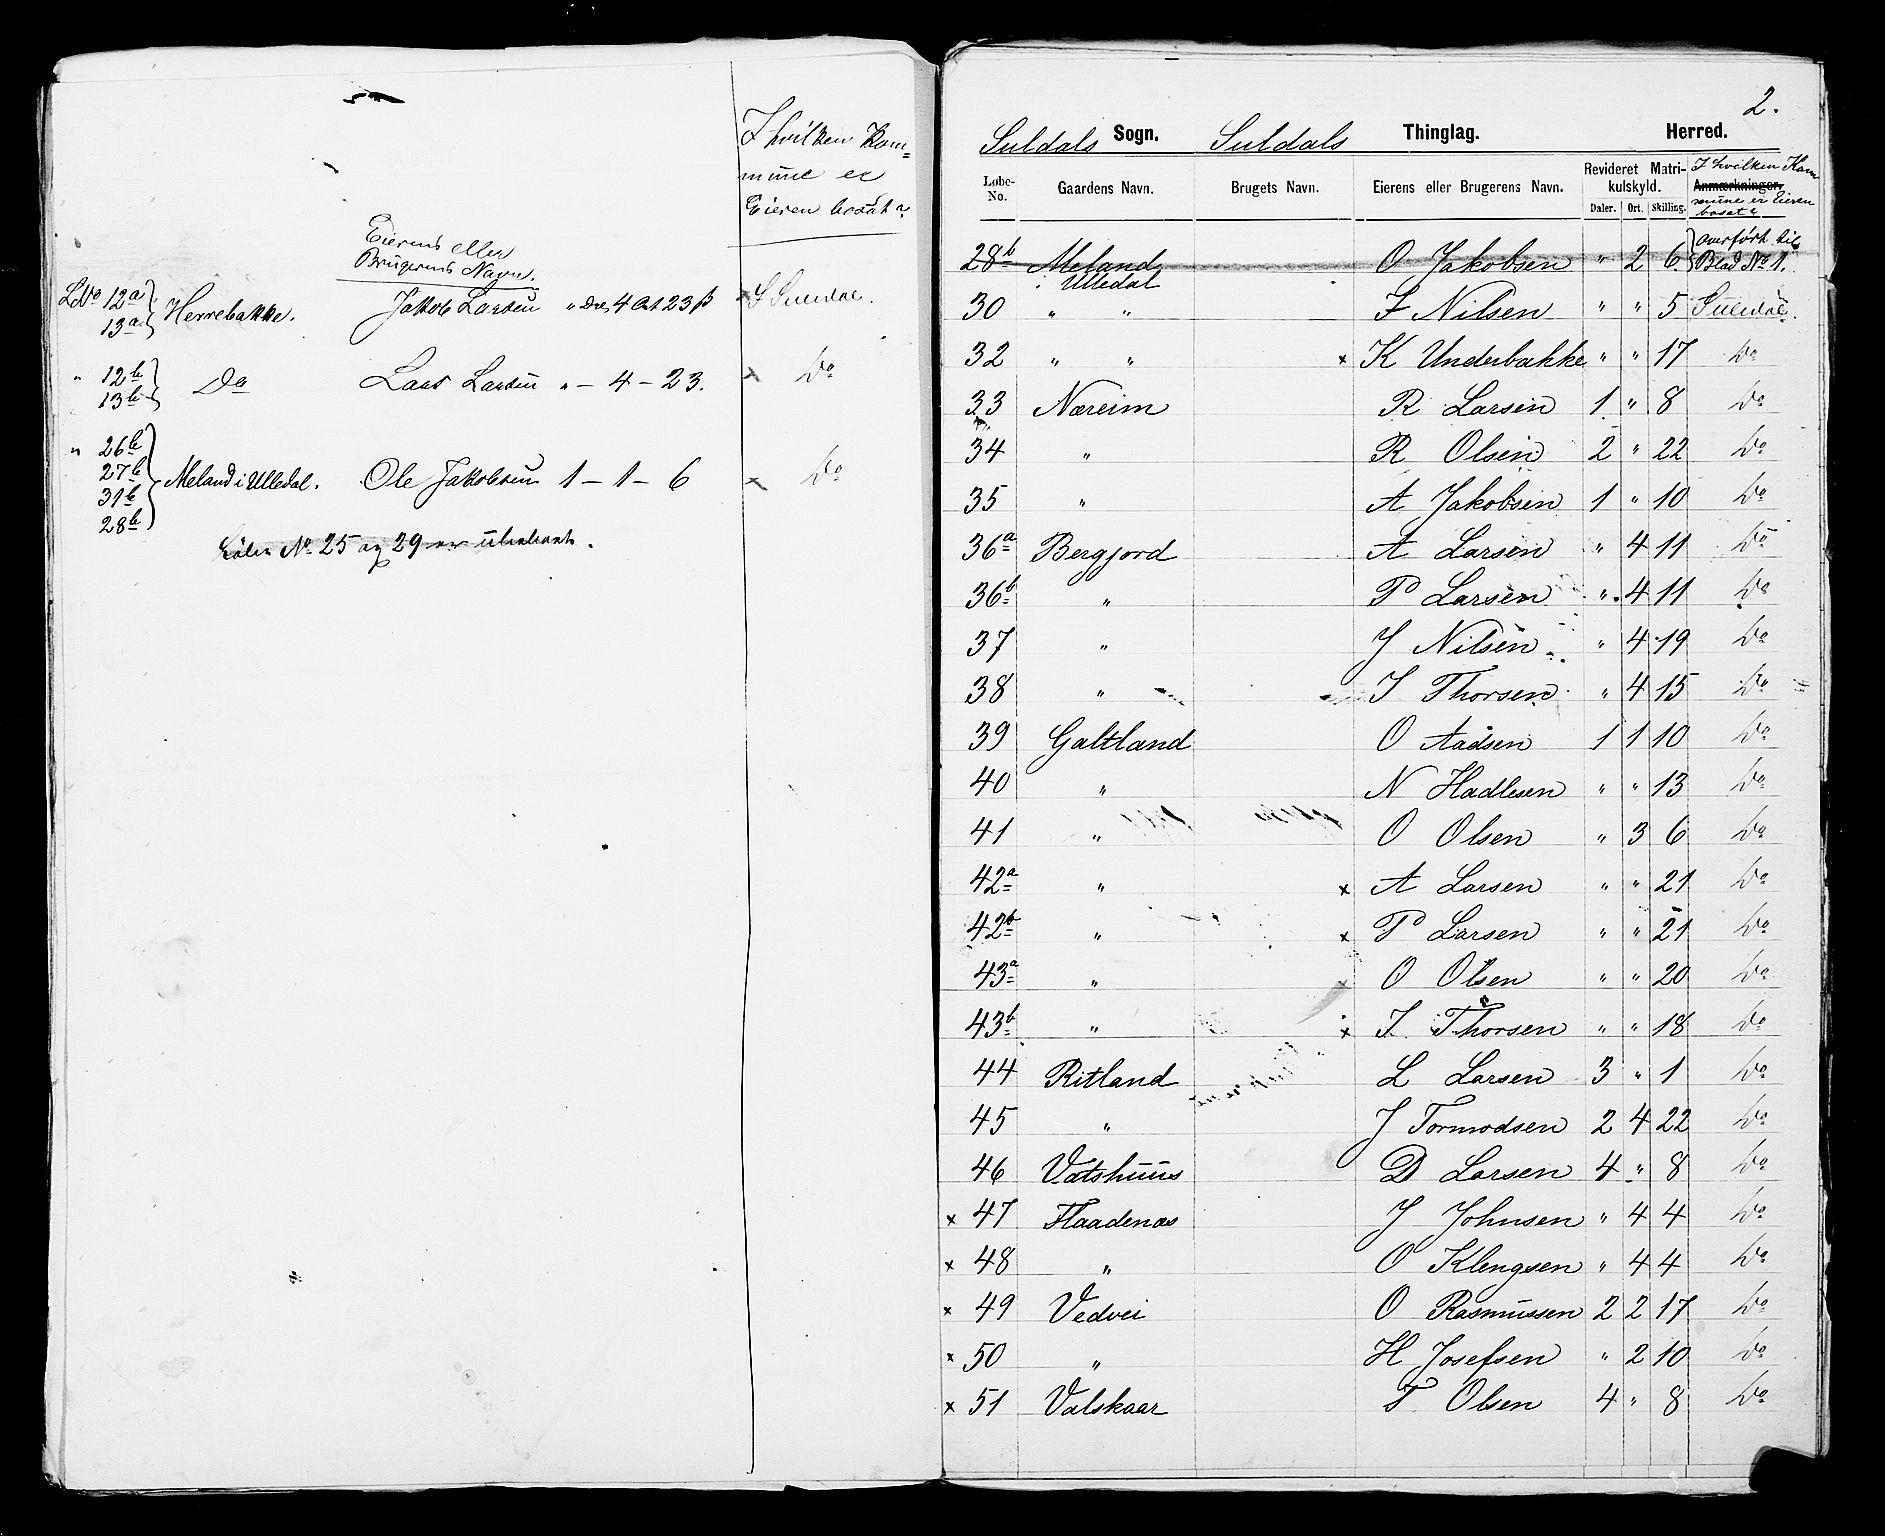 I hvilken Kom=
mune er
Eieren bosat?
Eierens eller
Brugerens Navn.
LNo 12a 13a Herrebakke. Jakob Larsen " Dlr 4 Ort 23 ß × I Suledal.
" 12b 13b Do Lars Larsen " – 4 – 23. × Do
" 26b 27b 31b 28b Meland i Ulledal. Ole Jakobsen 1 – 1 – 6 × Do
Løbe No 25 og 29 er ubeboet.
2.
Suldals Sogn. Suldals Thinglag. Herred.
Løbe-No. Gaardens Navn. Brugets Navn. Eierens eller Brugerens Navn. Revideret Matrikulskyld. Daler. Ort. Skilling. Anmærkninger. I hvilken Kommune er Eieren bosat?
28b Meland i Ulledal O Jakobsen " 2 6 Overført til Blad No 1.
30 " " I Nilsen " " 5 Suledal.
32 " " × K Underbakke " " 17 Do
33 Næreim R Larsen 1 " 8 Do
34 " R Olsen 2 " 22 Do
35 " A Jakobsen 1 " 10 Do
36a Bergjord A Larsen " 4 11 Do
36b " P Larsen " 4 11 Do
37 " J Nilsen " 4 19 Do
38 " I Thorsen " 4 15 Do
39 Galtland O Aadsen 1 1 10 Do
40 " N Hadlesen " " 13 Do
41 " O Olsen " 3 6 Do
42a " × A Larsen " " 21 Do
42b " × P Larsen " " 21 Do
43a " × O Olsen " " 20 Do
43b " × I Thorsen " " 18 Do
44 Ritland L Larsen 3 " 1 Do
45 " J Tormodsen 2 4 22 Do
46 Vatshuus D Larsen 4 " 8 Do
× 47 Flaadenæs J Johnsen " 4 4 Do
× 48 " O Klengsen " 4 4 Do
× 49 Vedvei O Rasmussen 2 2 17 Do
× 50 " H Josefsen " 2 10 Do
× 51 Valskaar T Olsen 4 " 8 Do